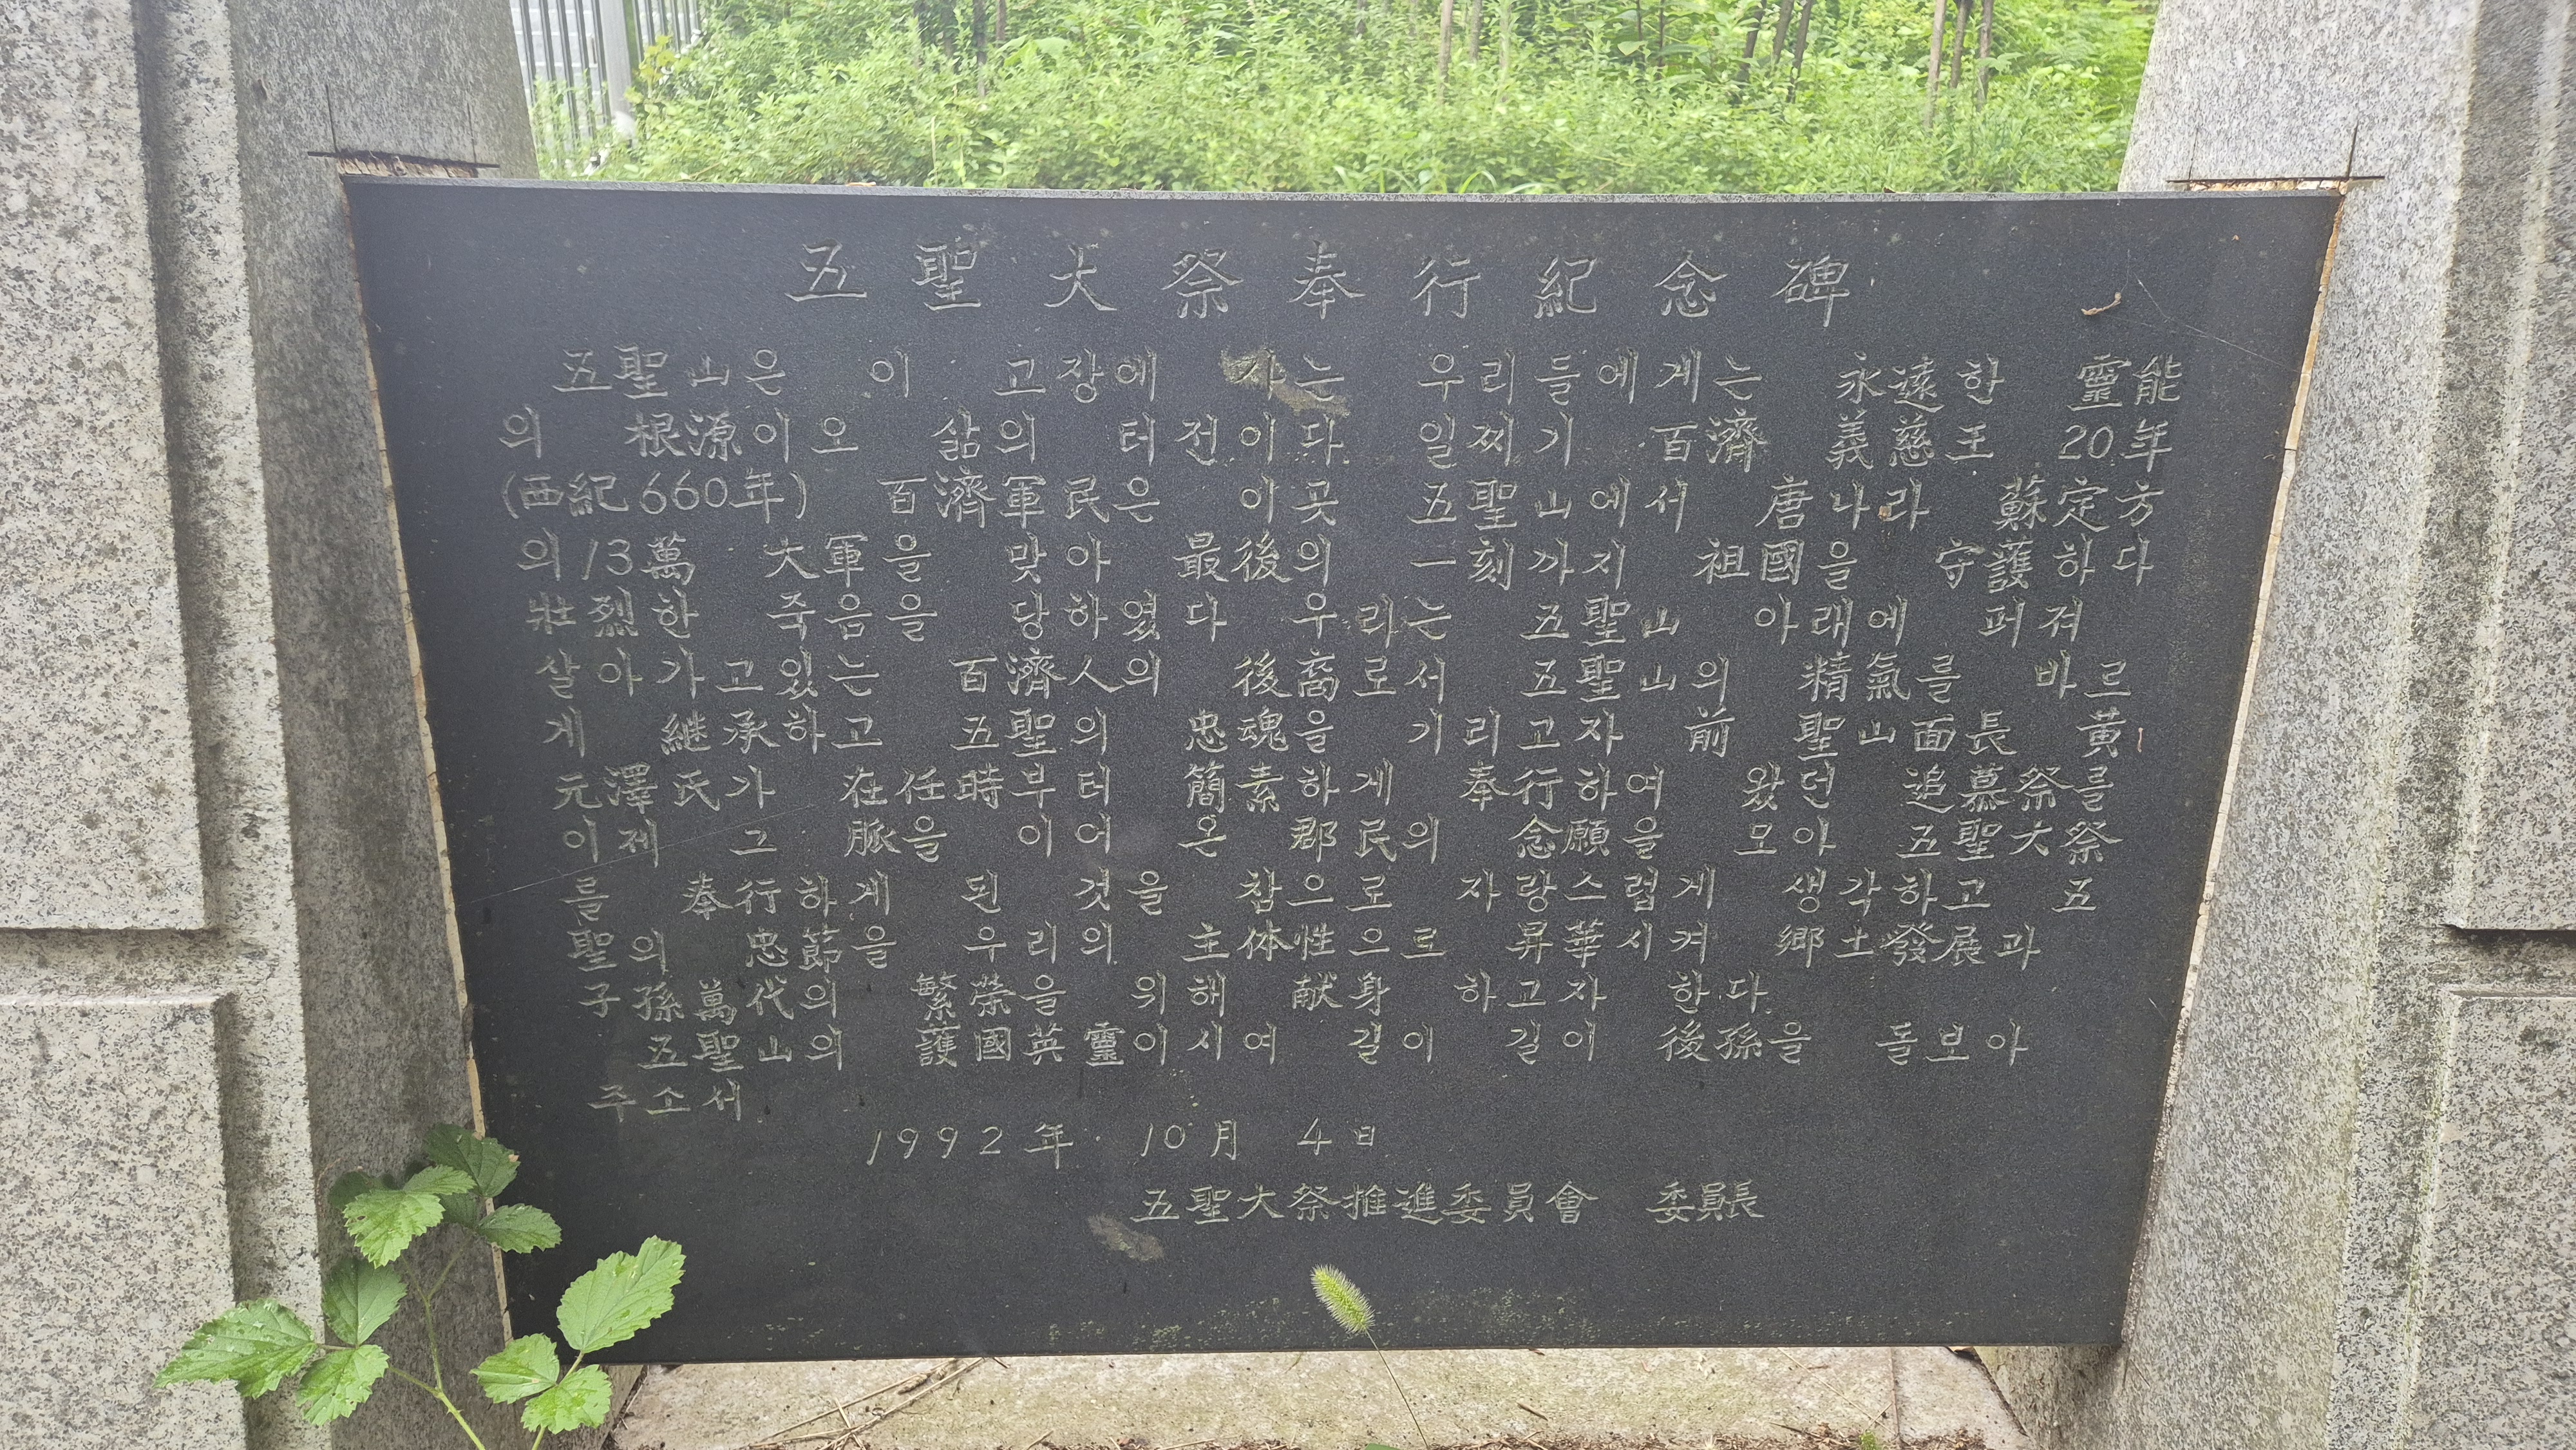 五聖大祭奉行紀念碑
五聖山은 이 고장에 사는 우리들에게는 永遠한 靈能
의 根源이오 삶의 터전이다 일찌기 百濟 義慈王 20年
(西紀660年) 百濟軍民은 이곳 五聖山에서 唐나라 蘇定方
의 13萬 大軍을 맞아 最後의 一刻까지 祖國을 守護하다
壯烈한 죽음을 당하였다 우리는 五聖山 아래에 퍼져
살아가고있는 百濟人의 後裔로서 五聖山의 精氣를 바르
게 継承하고 五聖의 忠魂을 기리고자 前 聖山面長 黃
元澤氏가 在任時부터 簡素하게 奉行하여 왔던 追慕祭를
이제 그 脈을 이어 온 郡民의 念願을 모아 五聖大祭
를 奉行하게 된 것을 참으로 자랑스럽게 생각하고 五
聖의 忠節을 우리의 主体性으로 昇華시켜 鄕土發展과
子孫萬代의 繁榮을 위해 献身 하고자 한다
五聖山의 護國英靈이시여 길이 길이 後孫을 돌보아
주소서
1992年 10月 4日
五聖大祭推進委員會 委員長